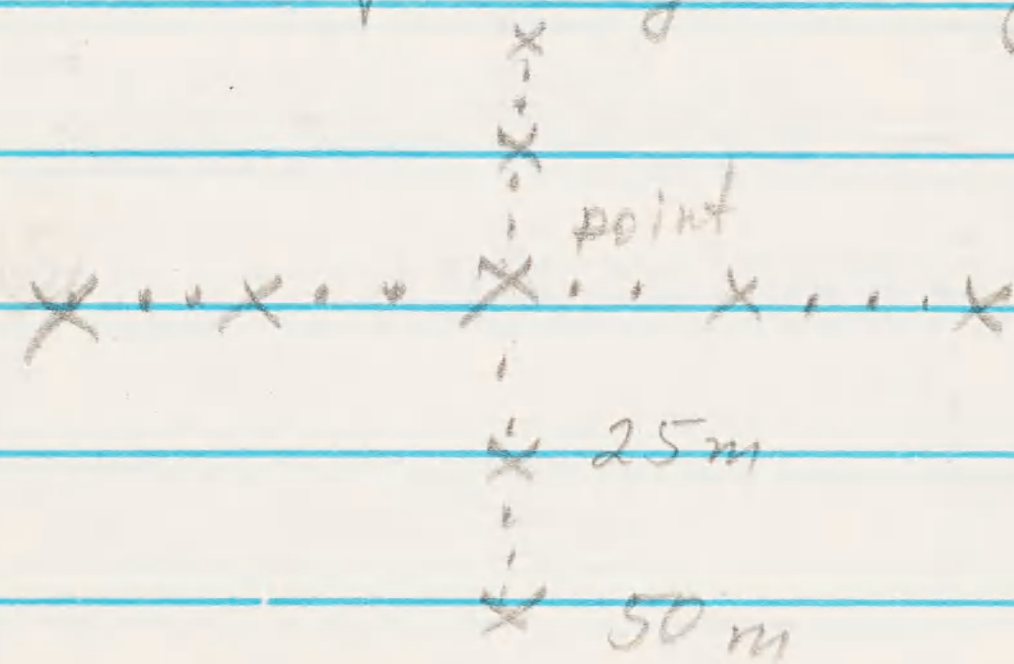 point
25m
50 m